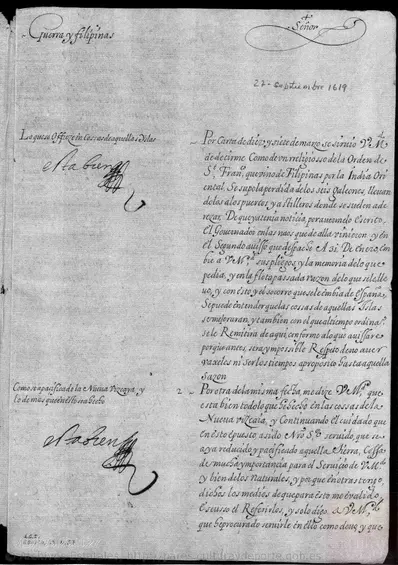 Guerra y filipinas
Señor
27 - septiembre 1619
Lo que se offreze en las cosas de aquellas islas
esta bien
Por Carta de diez y siete de março se sirvio V. M.d
de decirme Como de un religiosso de la Orden de
S.t Fran.co que vino de Filipinas por la India Ori
ental. Se supo la perdida de los seis galeones, llevan
dolos a los puertos y astilleros donde se suelen ade
rezar. De que ya tenia noticia, por avermelo escrito
el Governador en las naos que de alla vinieron, y en
el Segundo avisso que despache A 31. De enero, em
bie a V. M.d sus pliegos, y la memoria de lo que
pedia, y en la flota passada razon de lo que se le lle
vo, y con esto y el socorro que se le embia de España
Se puede entender que las cosas de aquellas Islas
se mejoraran, y tambien con el que al tiempo ordin.o
se le Remitira de aqui, conforme a lo que avissare
por que antes, sera ympossible Respeto de no aver
vaxeles ni ser los tiempos aproposito hasta aquella
sazon
Como va pacifica de la Nueva Vizcaya, y
lo demas que en ello ha hecho
esta bien
2 - Por otra de la misma fecha me dize V. M.d que
esta bien todo lo que Se hizo en las cosas de la
Nueva vizcaia, y Continuando el cuidado que
en esto e puesto a sido Nro S.r servido que se
aya reducido y pacificado aquella Sierra, Cossa
de mucha ymportancia para el Servicio de V. M.d
y bien de los naturales, y por que en otras tengo
dichos los medios de que para esto me e valido
Escusso el Referirlos, y solo digo, a V. M.d
que he procurado servirle en ello como devo, y que